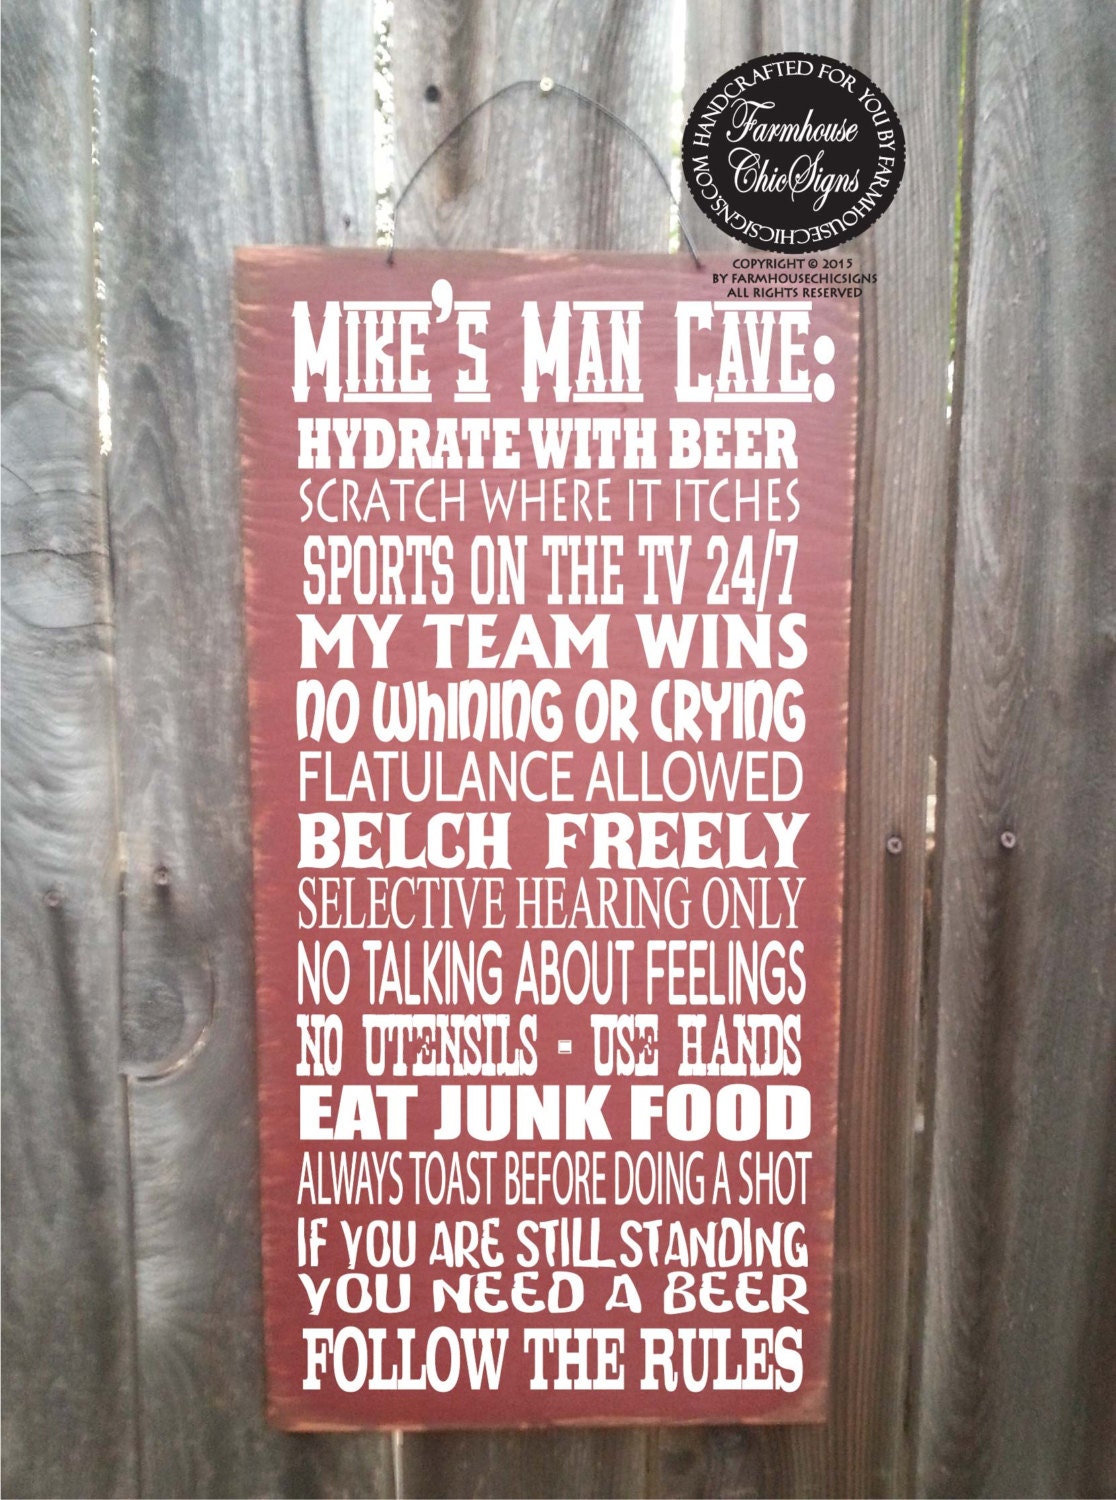 HANDCRAFTED FOR YOU BY FARMHOUSECHICSIGNS.COM
Farmhouse
ChicSigns
COPYRIGHT © 2015
BY FARMHOUSECHICSIGNS
ALL RIGHTS RESERVED
MIKE'S MAN CAVE:
HYDRATE WITH BEER
SCRATCH WHERE IT ITCHES
SPORTS ON THE TV 24/7
MY TEAM WINS
NO WHINING OR CRYING
FLATULANCE ALLOWED
BELCH FREELY
SELECTIVE HEARING ONLY
NO TALKING ABOUT FEELINGS
NO UTENSILS - USE HANDS
EAT JUNK FOOD
ALWAYS TOAST BEFORE DOING A SHOT
IF YOU ARE STILL STANDING
YOU NEED A BEER
FOLLOW THE RULES